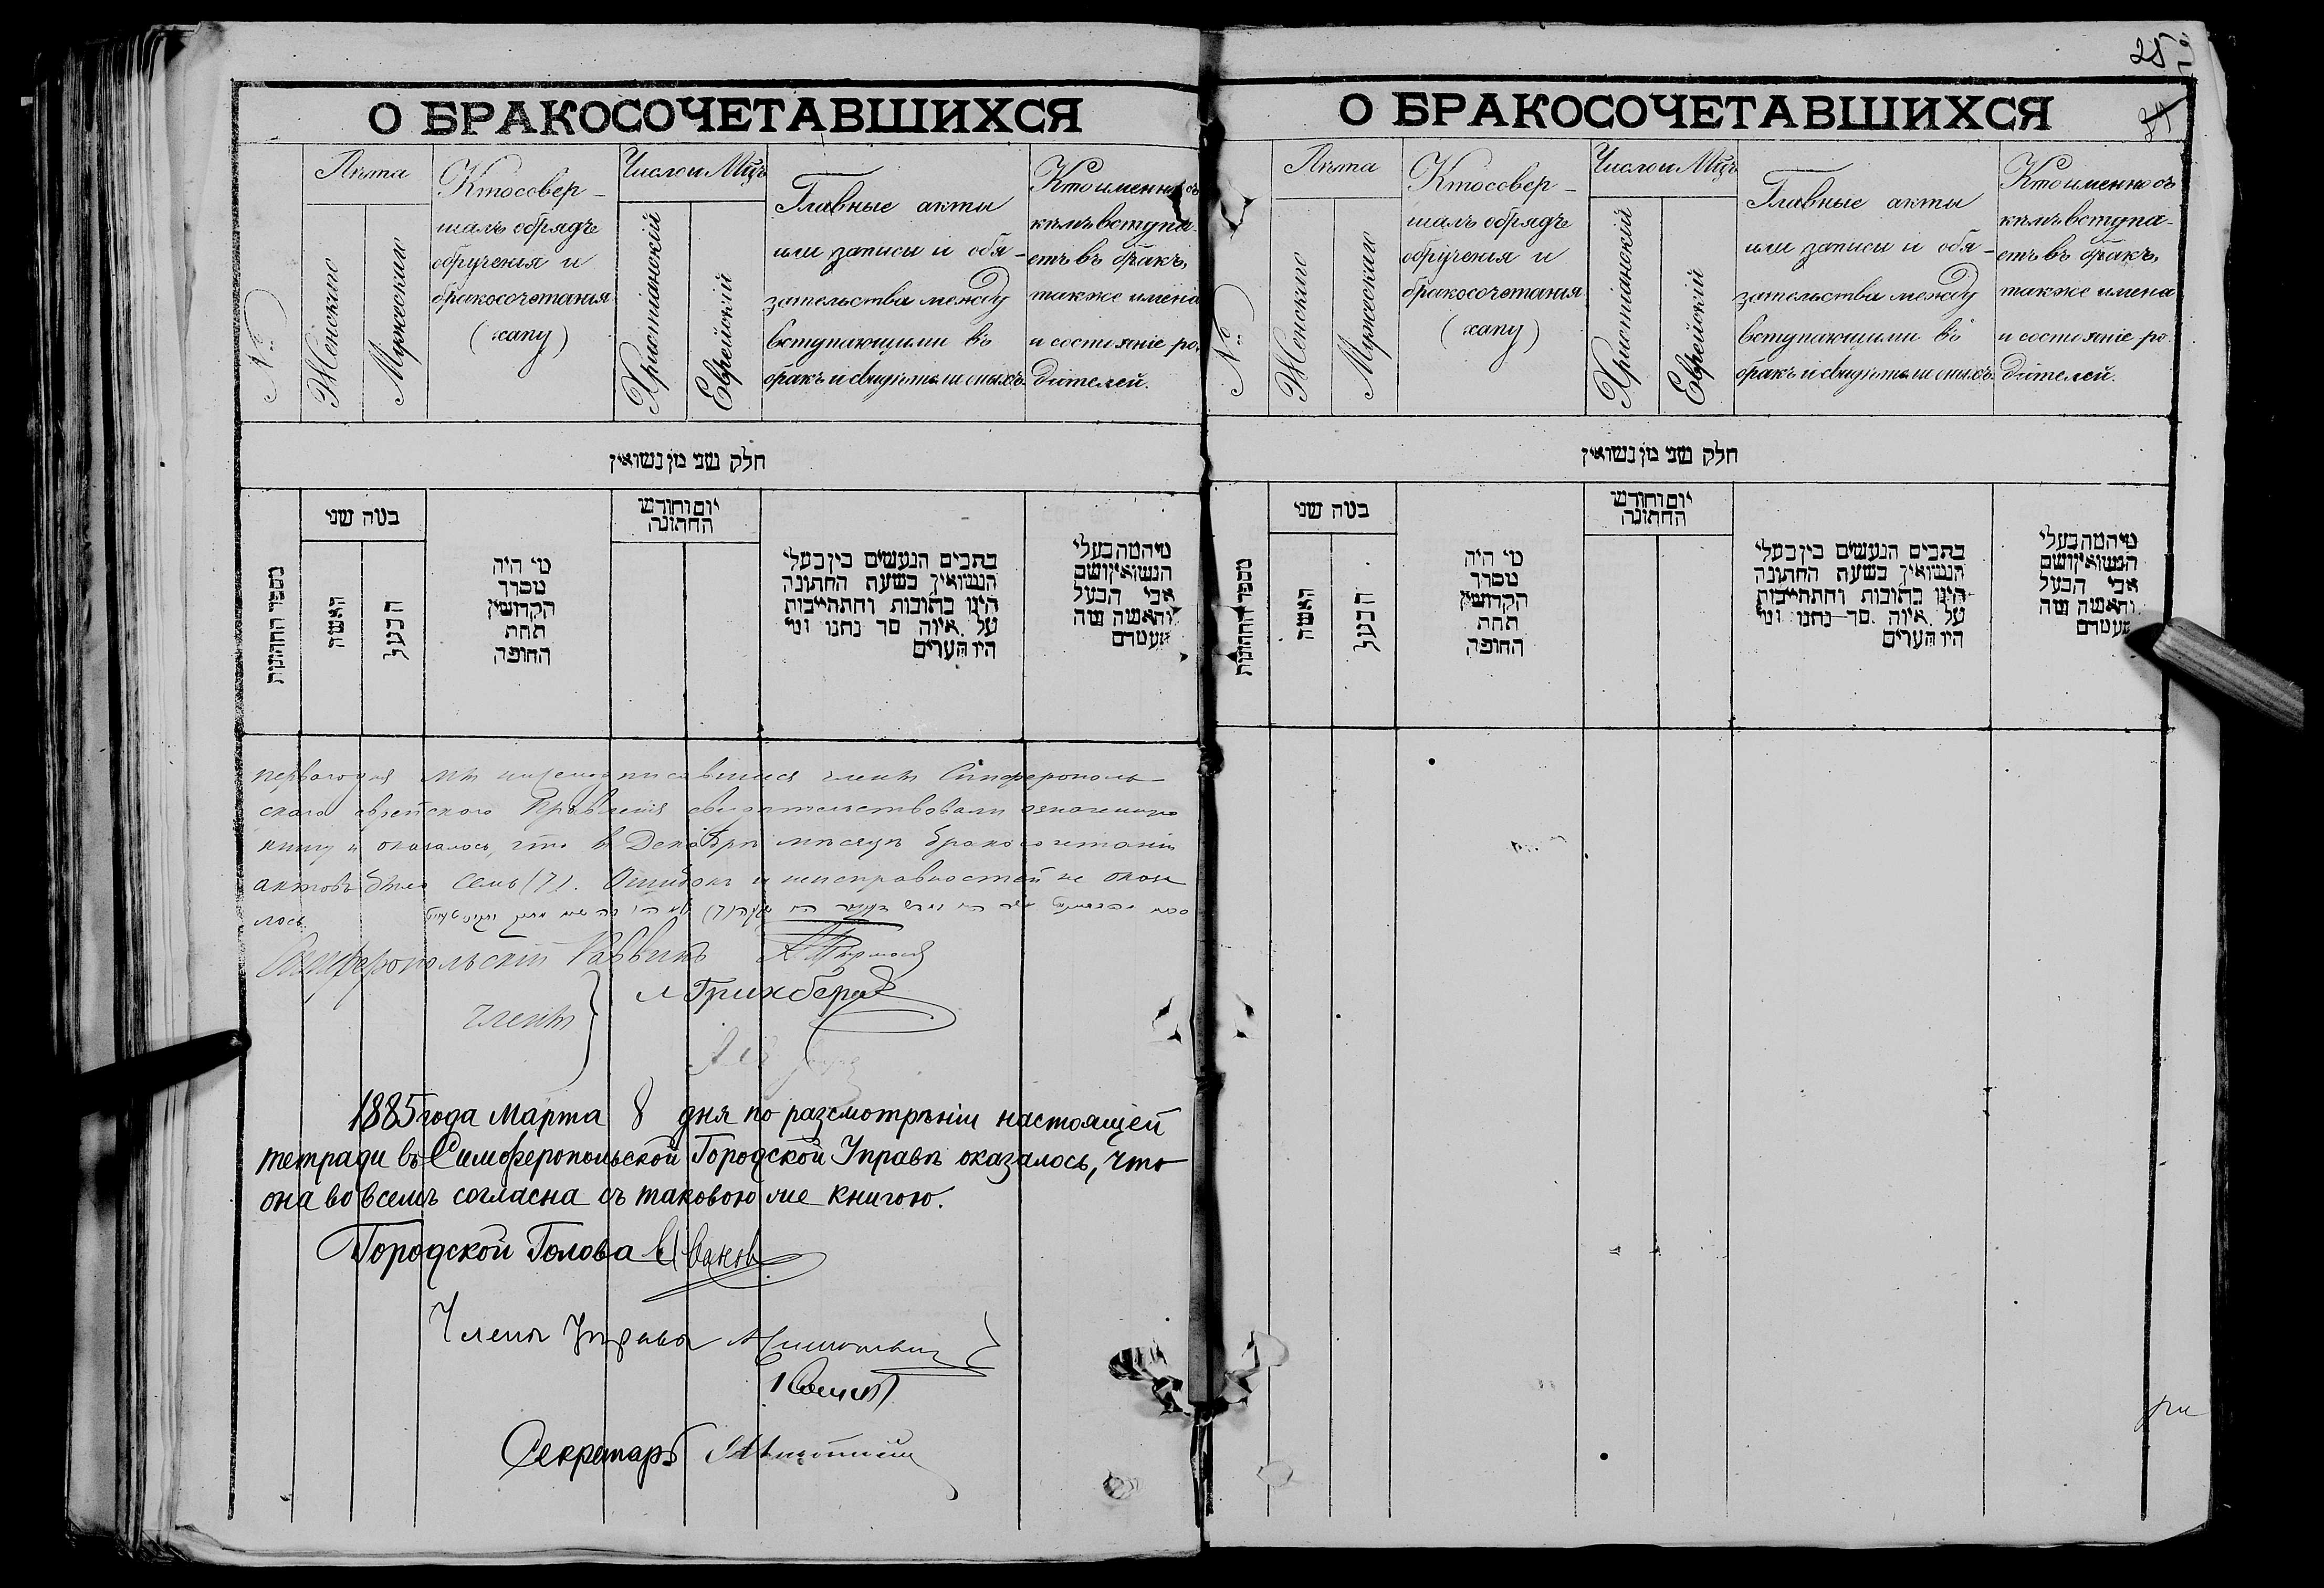 О БРАКОСОЧЕТАВШИХСЯ
№
Лѣта
Женскаго
Мужескаго
Кто совер-
шалъ обрядъ
обрученія и
бракосочетанія
(хапу)
Число и Мцъ
Христіанскій
Еврейскій
Главные акты
или записи и обя-
зательства между
вступающими въ
бракъ и свидѣтели оныхъ
Кто именно съ
кѣмъ вступа-
етъ въ бракъ,
также имена
и состояніе ро-
дителей.
חלק שני מן נשואין
מספר החתונות
במה שני
האשה
הבעל
מי היה
מסדר
הקדושין
תחת
החופה
יום וחודש
החתונה
כתבים הנעשים בין בעלי
הנשואין בשעת החתונה
היינו כתובות והתחייבות
על איזה סך נתנו ומי
היו העדים
מיהמה בעלי
הנשואין ושם
אבי הבעל
והאשה ומה
מעמדם
перваго дня мы нижеподписавшиеся члены Симферополь-
скаго еврейского Правленія свидѣтельствовали означенную
книгу и оказалось, что въ Декабрѣ мѣсяцѣ бракосочетанія
актовъ было семь (7). Ошибокъ и неисправностей не оказа
лось.
Симферопольскій Раввинъ
Члены
Гринберг
1885 года Марта 8 дня по разсмотрѣніи настоящей
тетради въ Симферопольской Городской Управѣ оказалось, что
она во всемъ согласна съ таковою же книгою.
Городской Голова Ивановъ
Члены Управы
Секретарь
О БРАКОСОЧЕТАВШИХСЯ
25
№
Лѣта
Женскаго
Мужескаго
Кто совер-
шалъ обрядъ
обрученія и
бракосочетанія
(хапу)
Число и Мцъ
Христіанскій
Еврейскій
Главные акты
или записи и обя-
зательства между
вступающими въ
бракъ и свидѣтели оныхъ
Кто именно съ
кѣмъ вступа-
етъ въ бракъ,
также имена
и состояніе ро-
дителей.
חלק שני מן נשואין
מספר החתונות
במה שני
האשה
הבעל
מי היה
מסדר
הקדושין
תחת
החופה
יום וחודש
החתונה
כתבים הנעשים בין בעלי
הנשואין בשעת החתונה
היינו כתובות והתחייבות
על איזה סך נתנו ומי
היו העדים
מיהמה בעלי
הנשואין ושם
אבי הבעל
והאשה ומה
מעמדם